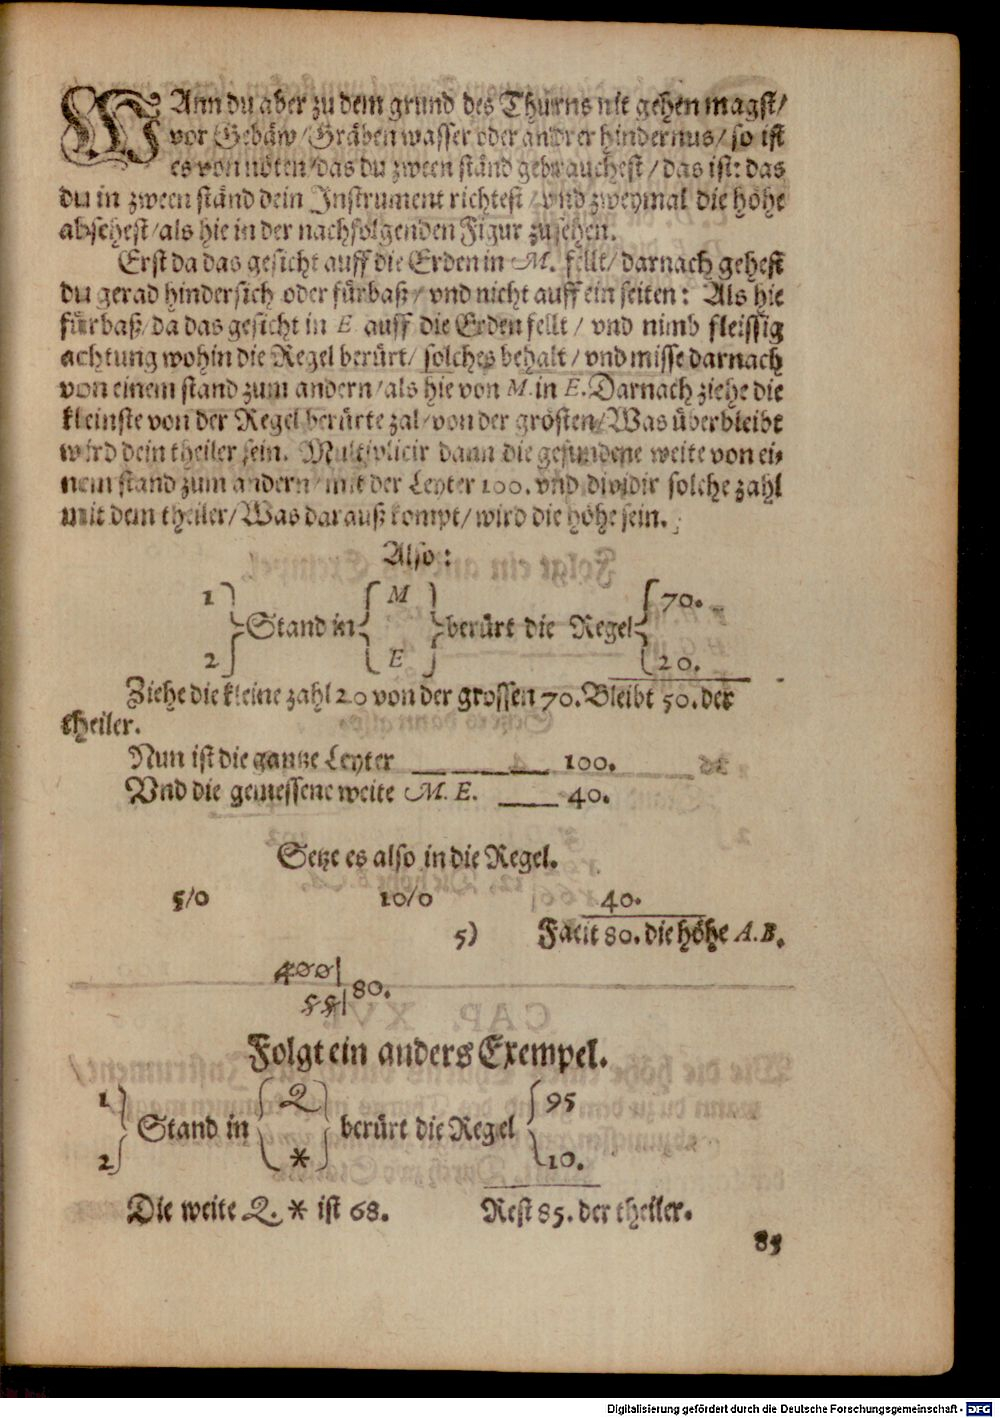 WAnn du aber zu dem grund des Thurns nit gehen magst/
vor Gebäw/Gräben wasser oder andrer hindernus/ so ist
es von nöten/das du zween ständ gebrauchest/ das ist: das
du in zween ständ dein Instrument richtest/ vnd zweymal die höhe
absehest/als hie in der nachfolgenden Figur zusehen.
Erst da das gesicht auff die Erden in M. fellt/ darnach gehest
du gerad hindersich oder fürbaß/ vnd nicht auff ein seiten: Als hie
fürbaß/da das gesicht in E auff die Erden fellt/ vnd nimb fleissig
achtung wohin die Regel berürt/ solches behalt/ vnd misse darnach
von einem stand zum andern/als hie von M. in E. Darnach ziehe die
kleinste von der Regel berürte zal/von der grösten/Was überbleibt
wird dein theiler sein. Multiplicir dann die gefundene weite von ei-
nem stand zum andern/mit der Leyter 100. vnd dividir solche zahl
mit dem theiler/Was darauß kompt/wird die höhe sein.
Also:
1 M 70.
Stand in berürt die Regel
2 E 20.
Ziehe die kleine zahl 20 von der grossen 70. Bleibt 50. der
theiler.
Nun ist die gantze Leyter 100.
Vnd die gemessene weite M. E. 40.
Setze es also in die Regel.
5/0 10/0 40.
5) Facit 80. die höhe A.B.
400
80.
55
Folgt ein anders Exempel.
1 Q 95
Stand in berürt die Regel
2 * 10.
Die weite Q. * ist 68. Rest 85. der theiler.
85
Digitalisierung gefördert durch die Deutsche Forschungsgemeinschaft - DFG